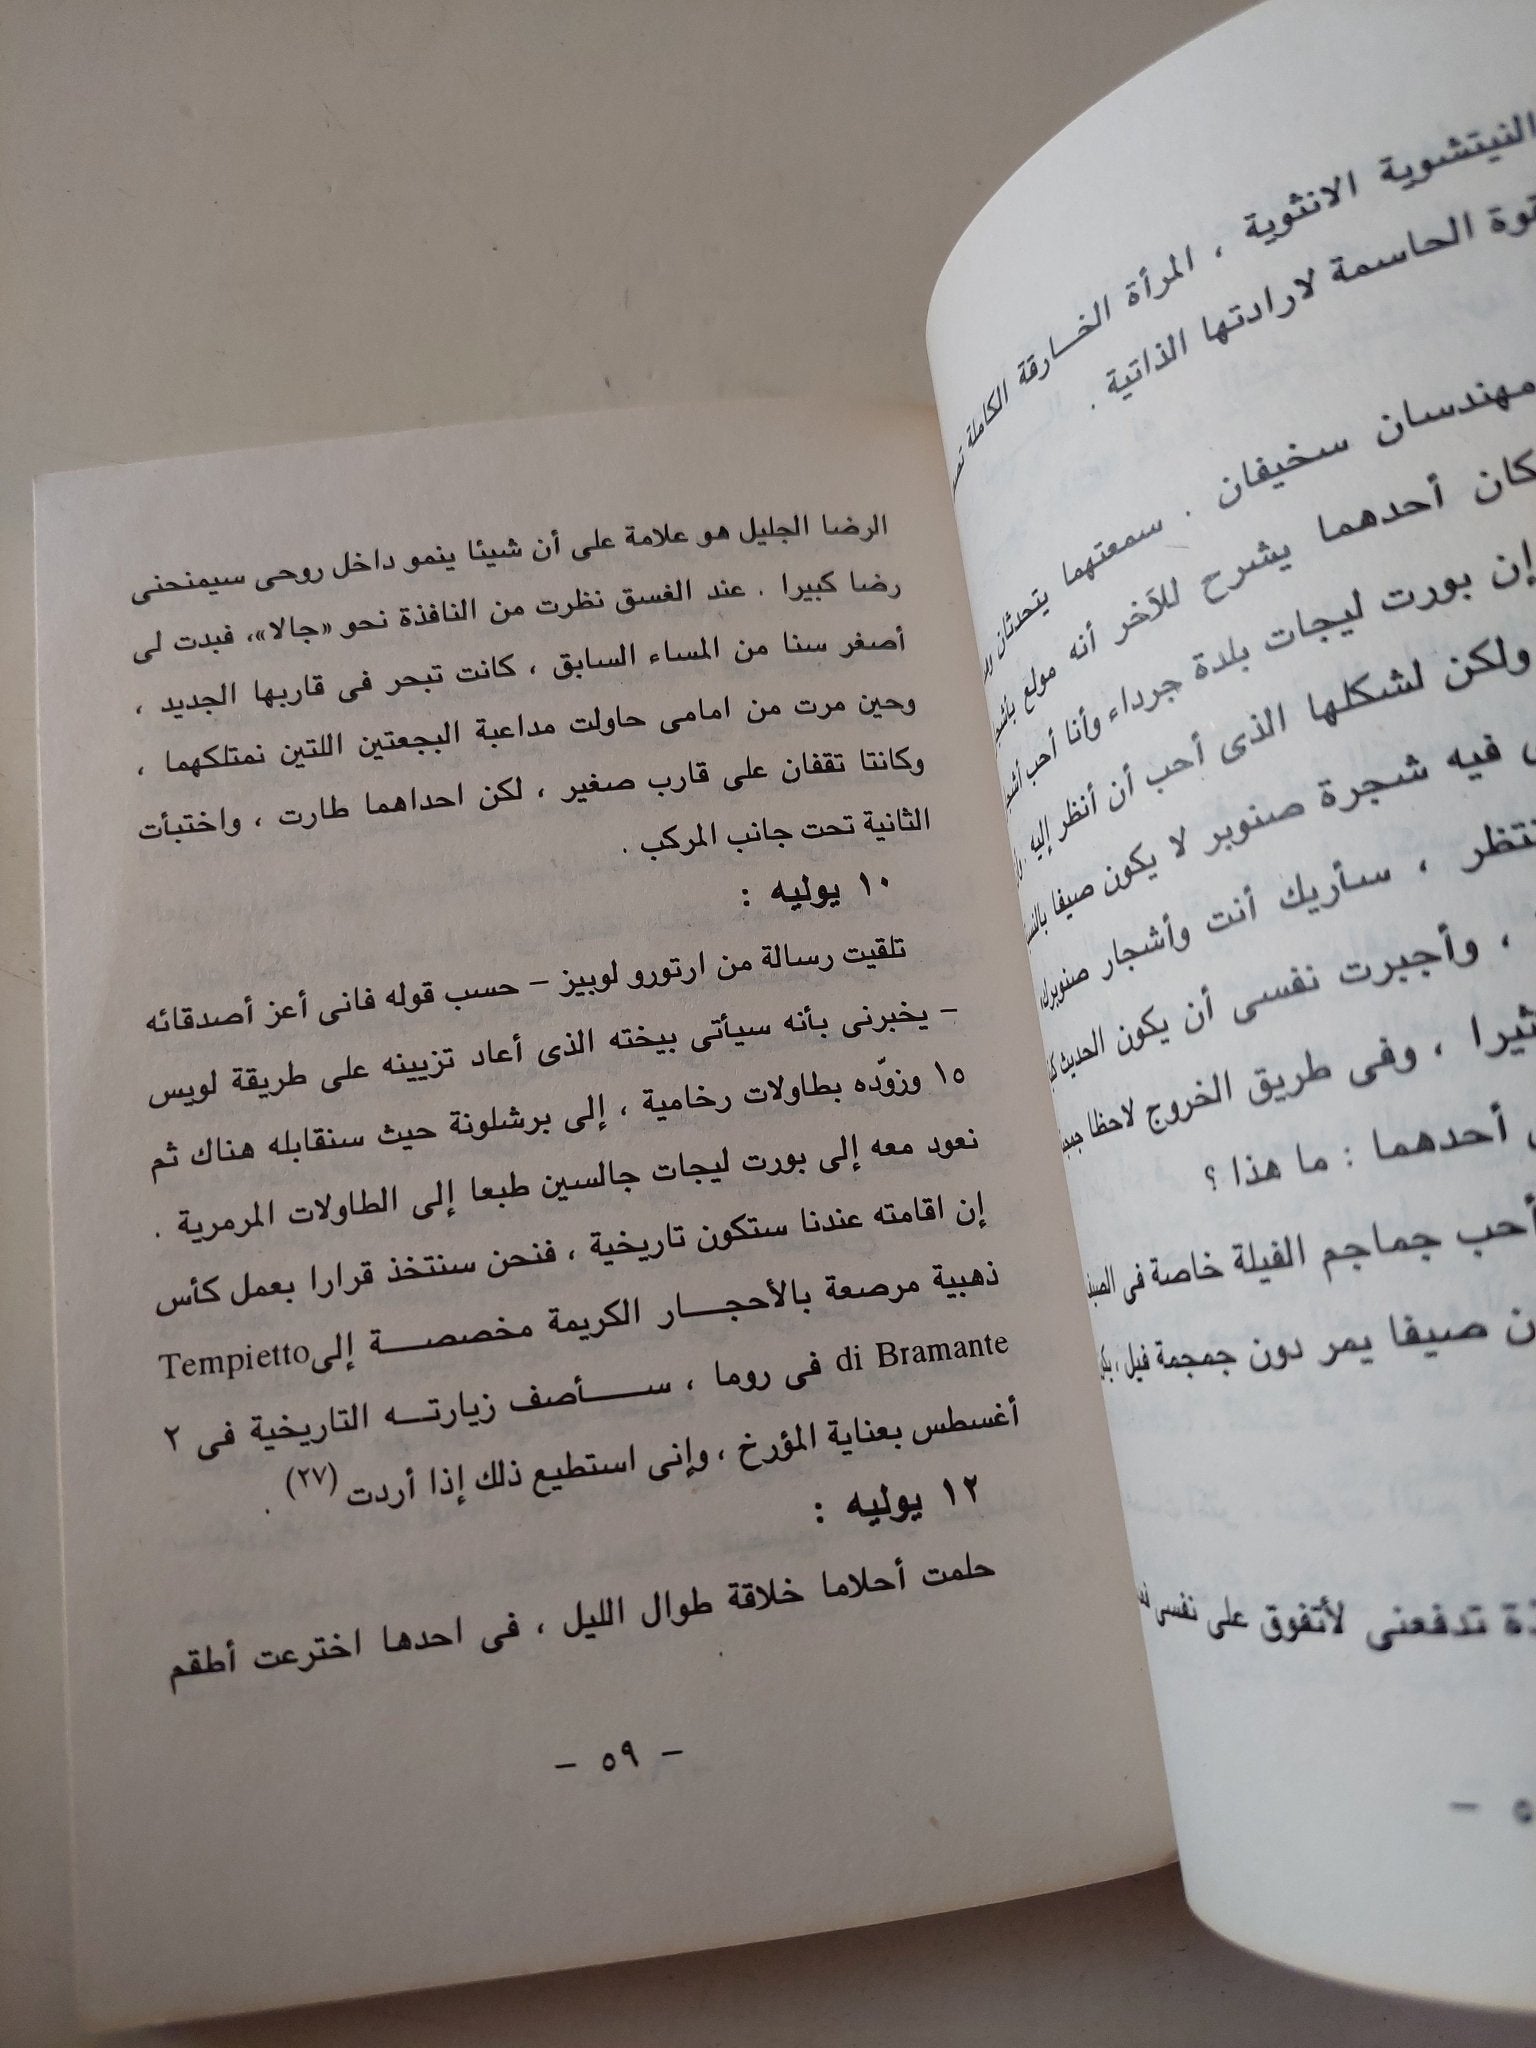 النيتشوية الانثوية ، المرأة الخارقة الكاملة
الحاسمة لارادتها الذاتية .
مهندسان سخيفان . سمعتهما يتحدثان
كان أحدهما يشرح للآخر أنه مولع
إن بورت ليجات بلدة جرداء وأنا أحب
ولكن لشكلها الذى أحب أن أنظر إليه .
فيه شجرة صنوبر لا يكون صيفا
، سأريك أنت وأشجار صنوبرك
، وأجبرت نفسى أن يكون الحديث
، وفى طريق الخروج لاحظا
أحدهما : ما هذا ؟
أحب جماجم الفيلة خاصة فى
صيفا يمر دون جمجمة فيل ،
تدفعنى لأتفوق على نفسى
الرضا الجليل هو علامة على أن شيئا ينمو داخل روحى سيمنحنى
رضا كبيرا . عند الغسق نظرت من النافذة نحو «جالا»، فبدت لى
أصغر سنا من المساء السابق ، كانت تبحر فى قاربها الجديد ،
وحين مرت من امامى حاولت مداعبة البجعتين اللتين نمتلكهما ،
وكانتا تقفان على قارب صغير ، لكن احداهما طارت ، واختبأت
الثانية تحت جانب المركب .
١٠ يوليه :
تلقيت رسالة من ارتورو لوبيز – حسب قوله فانى أعز أصدقائه
– يخبرنى بأنه سيأتى بيخته الذى أعاد تزيينه على طريقة لويس
١٥ وزوّده بطاولات رخامية ، إلى برشلونة حيث سنقابله هناك ثم
نعود معه إلى بورت ليجات جالسين طبعا إلى الطاولات المرمرية .
إن اقامته عندنا ستكون تاريخية ، فنحن سنتخذ قرارا بعمل كأس
ذهبية مرصعة بالأحجـــار الكريمة مخصصــة إلى Tempietto
di Bramante فى روما ، ســأصف زيارتــه التاريخية فى ٢
أغسطس بعناية المؤرخ ، وإنى استطيع ذلك إذا أردت (٢٧) .
١٢ يوليه :
حلمت أحلاما خلاقة طوال الليل ، فى احدها اخترعت أطقم
– ٥٩ –